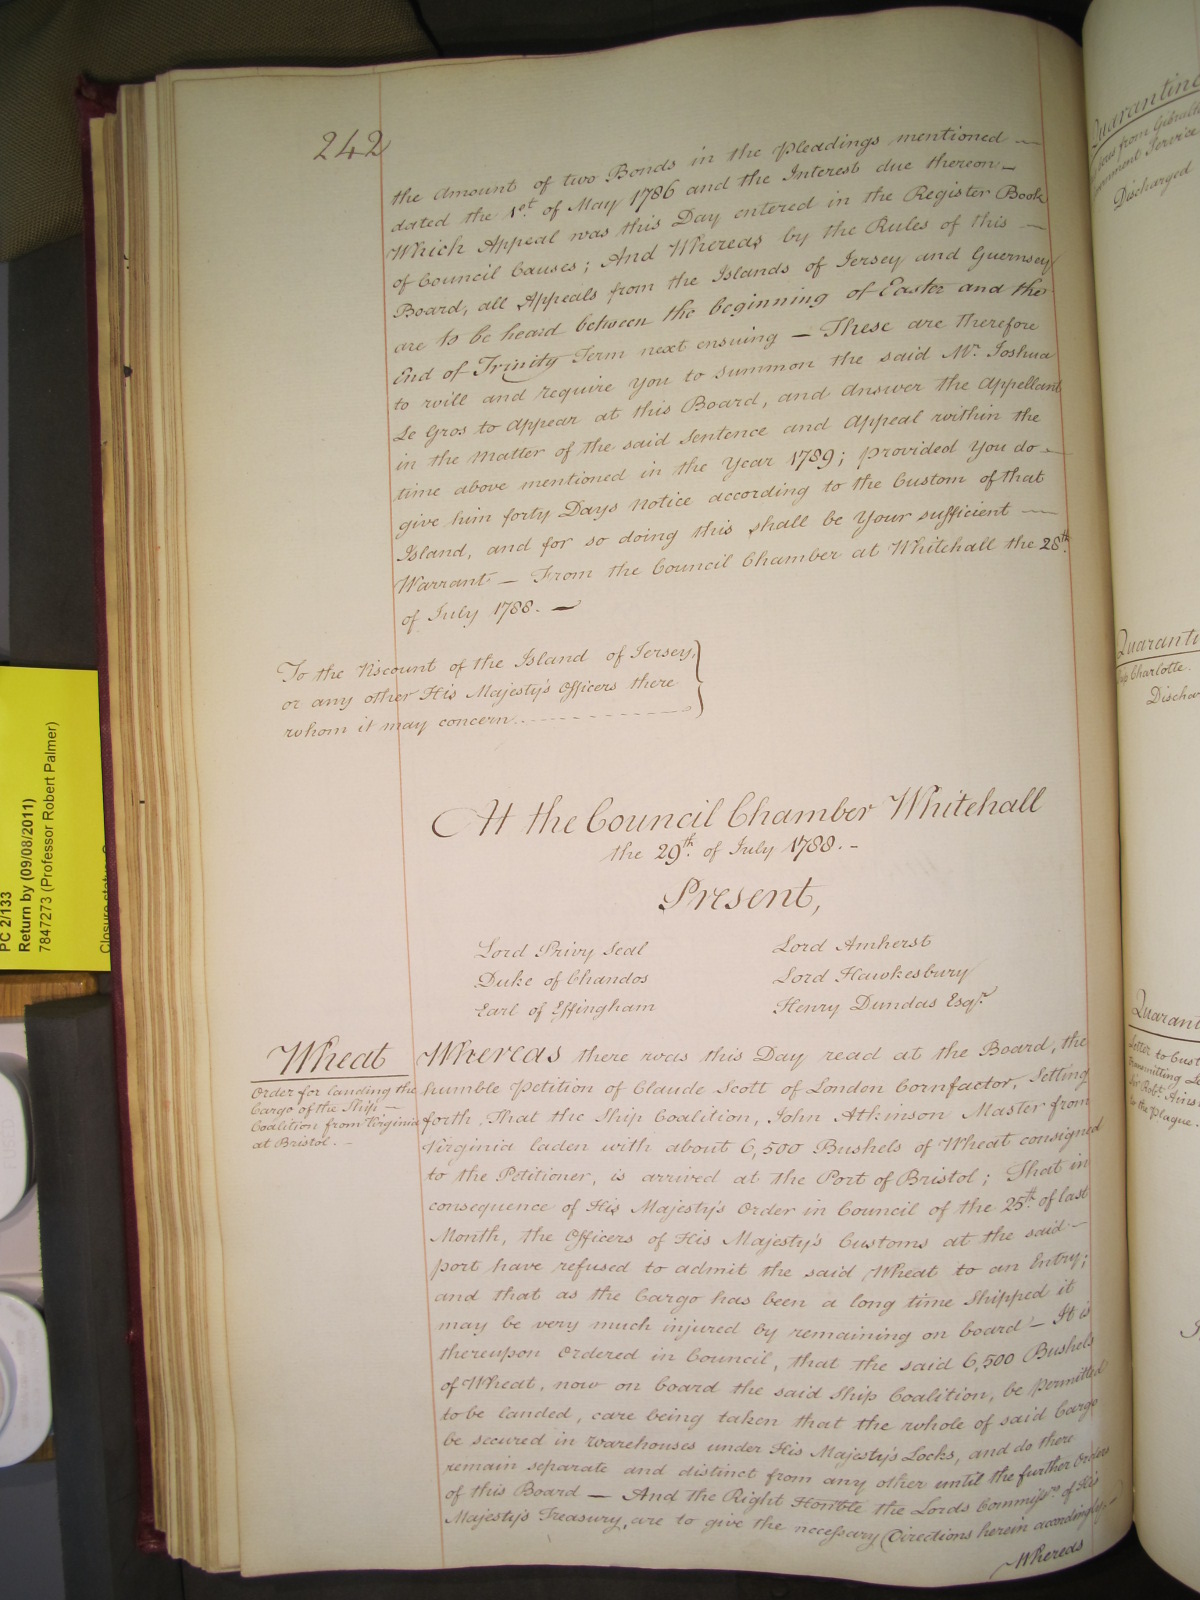 242
the Amount of two Bonds in the Pleadings mentioned —
dated the 1st. of May 1786 and the Interest due thereon —
Which Appeal was this Day entered in the Register Book
of Council Causes; And Whereas by the Rules of this —
Board, all Appeals from the Islands of Jersey and Guernsey
are to be heard between the beginning of Easter and the
End of Trinity Term next ensuing — These are therefore
to will and require You to summon the said Mr. Joshua
Le Gros to Appear at this Board, and Answer the Appellant
in the Matter of the said Sentence and Appeal within the
time above mentioned in the Year 1789; provided You do —
give him forty Days Notice according to the Custom of that
Island, and for so doing this shall be Your sufficient —
Warrant — From the Council Chamber at Whitehall the 28th.
of July 1788. —
To the Viscount of the Island of Jersey,
or any other His Majesty's Officers there
whom it may concern
At the Council Chamber Whitehall
the 29th. of July 1788. -
Present,
Lord Privy Seal
Duke of Chandos
Earl of Effingham
Lord Amherst
Lord Hawkesbury
Henry Dundas Esqr.
Wheat
Order for landing the
Cargo of the Ship —
Coalition from Virginia
at Bristol. -
Whereas there was this Day read at the Board, the
humble Petition of Claude Scott of London Cornfactor, Setting
forth, That the Ship Coalition, John Atkinson Master from
Virginia laden with about 6,500 Bushels of Wheat consigned
to the Petitioner, is arrived at the Port of Bristol; That in
consequence of His Majesty's Order in Council of the 25th. of last
Month, the Officers of His Majesty's Customs at the said —
port have refused to admit the said Wheat to an Entry;
and that as the Cargo has been a long time Shipped it
may be very much injured by remaining on board — It is
thereupon Ordered in Council, that the said 6,500 Bushels
of Wheat, now on board the said Ship Coalition, be permitted
to be landed, care being taken that the whole of said Cargo
be secured in Warehouses under His Majesty's Locks, and do there
remain separate and distinct from any other until the further Orders
of this Board — And the Right Honble the Lords Commissrs. of His
Majesty's Treasury, are to give the necessary Directions herein accordingly. —
Whereas
PC 2/133
Return by (09/08/2011)
7847273 (Professor Robert Palmer)
Closure status:
Quarantine
from Gibralt
Service
Discharged
Quaranti
Charlotte.
Discha
Quaran
Letter to Cust
transmitting
Robt. Ains
the Plague.